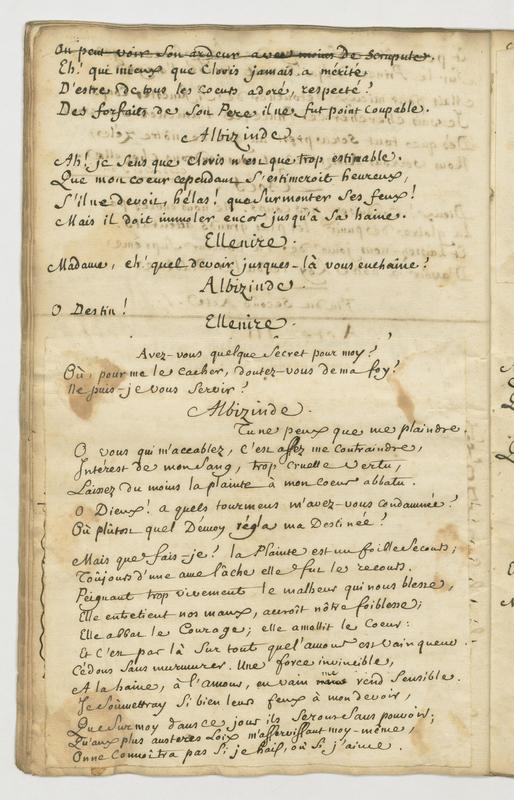 On peut voir son ardeur avec moins de scrupule.
Eh! qui mieux que Clovis jamais a merité
D'estre de tous les coeurs adoré, respecté?
Des forfaits de son Pere il ne fut point coupable.
Albizinde
Ah! je sens que Clovis n'est que trop estimable.
Que mon coeur cependant s'estimeroit heureux,
S'il ne devoit, hélas! que surmonter ses feux!
Mais il doit immoler encor jusqu'à sa haine.
Ellenire.
Madame, eh! quel devoir jusques-là vous enchaîne?
Albizinde.
O Destin!
Ellenire.
Avez-vous quelque secret pour moy?
Où, pour me le cacher, doutez-vous de ma foy?
Ne puis-je vous servir?
Albizinde.
Tu ne peux que me plaindre.
O vous qui m'accablez, c'est assez me contraindre,
Intérest de mon sang, trop cruelle vertu,
Laissez du moins la plainte à mon coeur abbatu.
O Dieux! a quels tourmens m'avez-vous condamnée?
Où plûtost quel Démon régla ma Destinée?
Mais que fais-je? la Plainte est un foible secours;
Toûjours d'une ame lâche elle fut le recours.
Peignant trop vivement le malheur qui nous blesse,
Elle entretient nos maux, accroît nôtre foiblesse;
Elle abbat le Courage; elle amollit le Coeur:
Et c'est par là sur tout quel'amour est vainqueur.
Cédons sans murmurer. Une force invincible,
A la haine, à l'amour, en vain me rend sensible.
Je soûmettray si bien leurs feux à mon devoir,
Que sur moy dans ce jour ils seront sans pouvoir;
Qu'aux plus austeres Loix m'asservissant moy-même,
On ne connoîtra pas si je hais, où si j'aime.